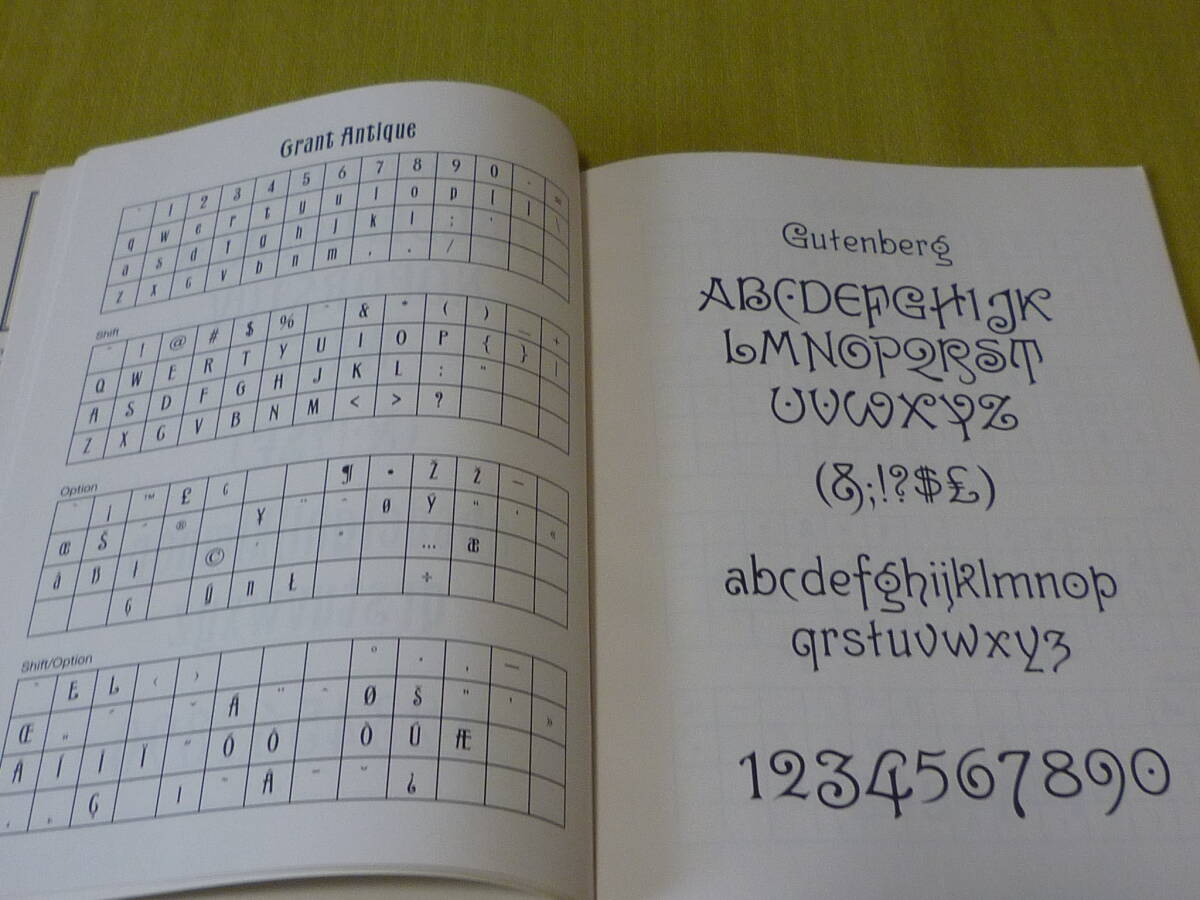 Grant Antique
` 1 2 3 4 5 6 7 8 9 0 - =
q w e r t y u i o p [ ] \
a s d f g h j k l ; '
z x c v b n m , . /
Shift
~ ! @ # $ % ^ & * ( ) _ +
Q W E R T Y U I O P { } |
A S D F G H J K L : "
Z X C V B N M < > ?
Option
™ £ ¢ ¶ • Ž ž –
œ Š ® ¥ ¨ ˆ ø Ÿ “ ‘ «
å ß © … æ
ç ÷
Shift/Option
‹ › ° · ‚ —
Œ „ Ø Š ” ’ »
Å Í Î Ï Ó Ô Ò Æ
Ç ı Â ¯ ˘ ¿
Gutenberg
ABCDEFGHIJK
LMNOPQRST
UVWXYZ
(&;!?$£)
abcdefghijklmnop
qrstuvwxyz
1234567890